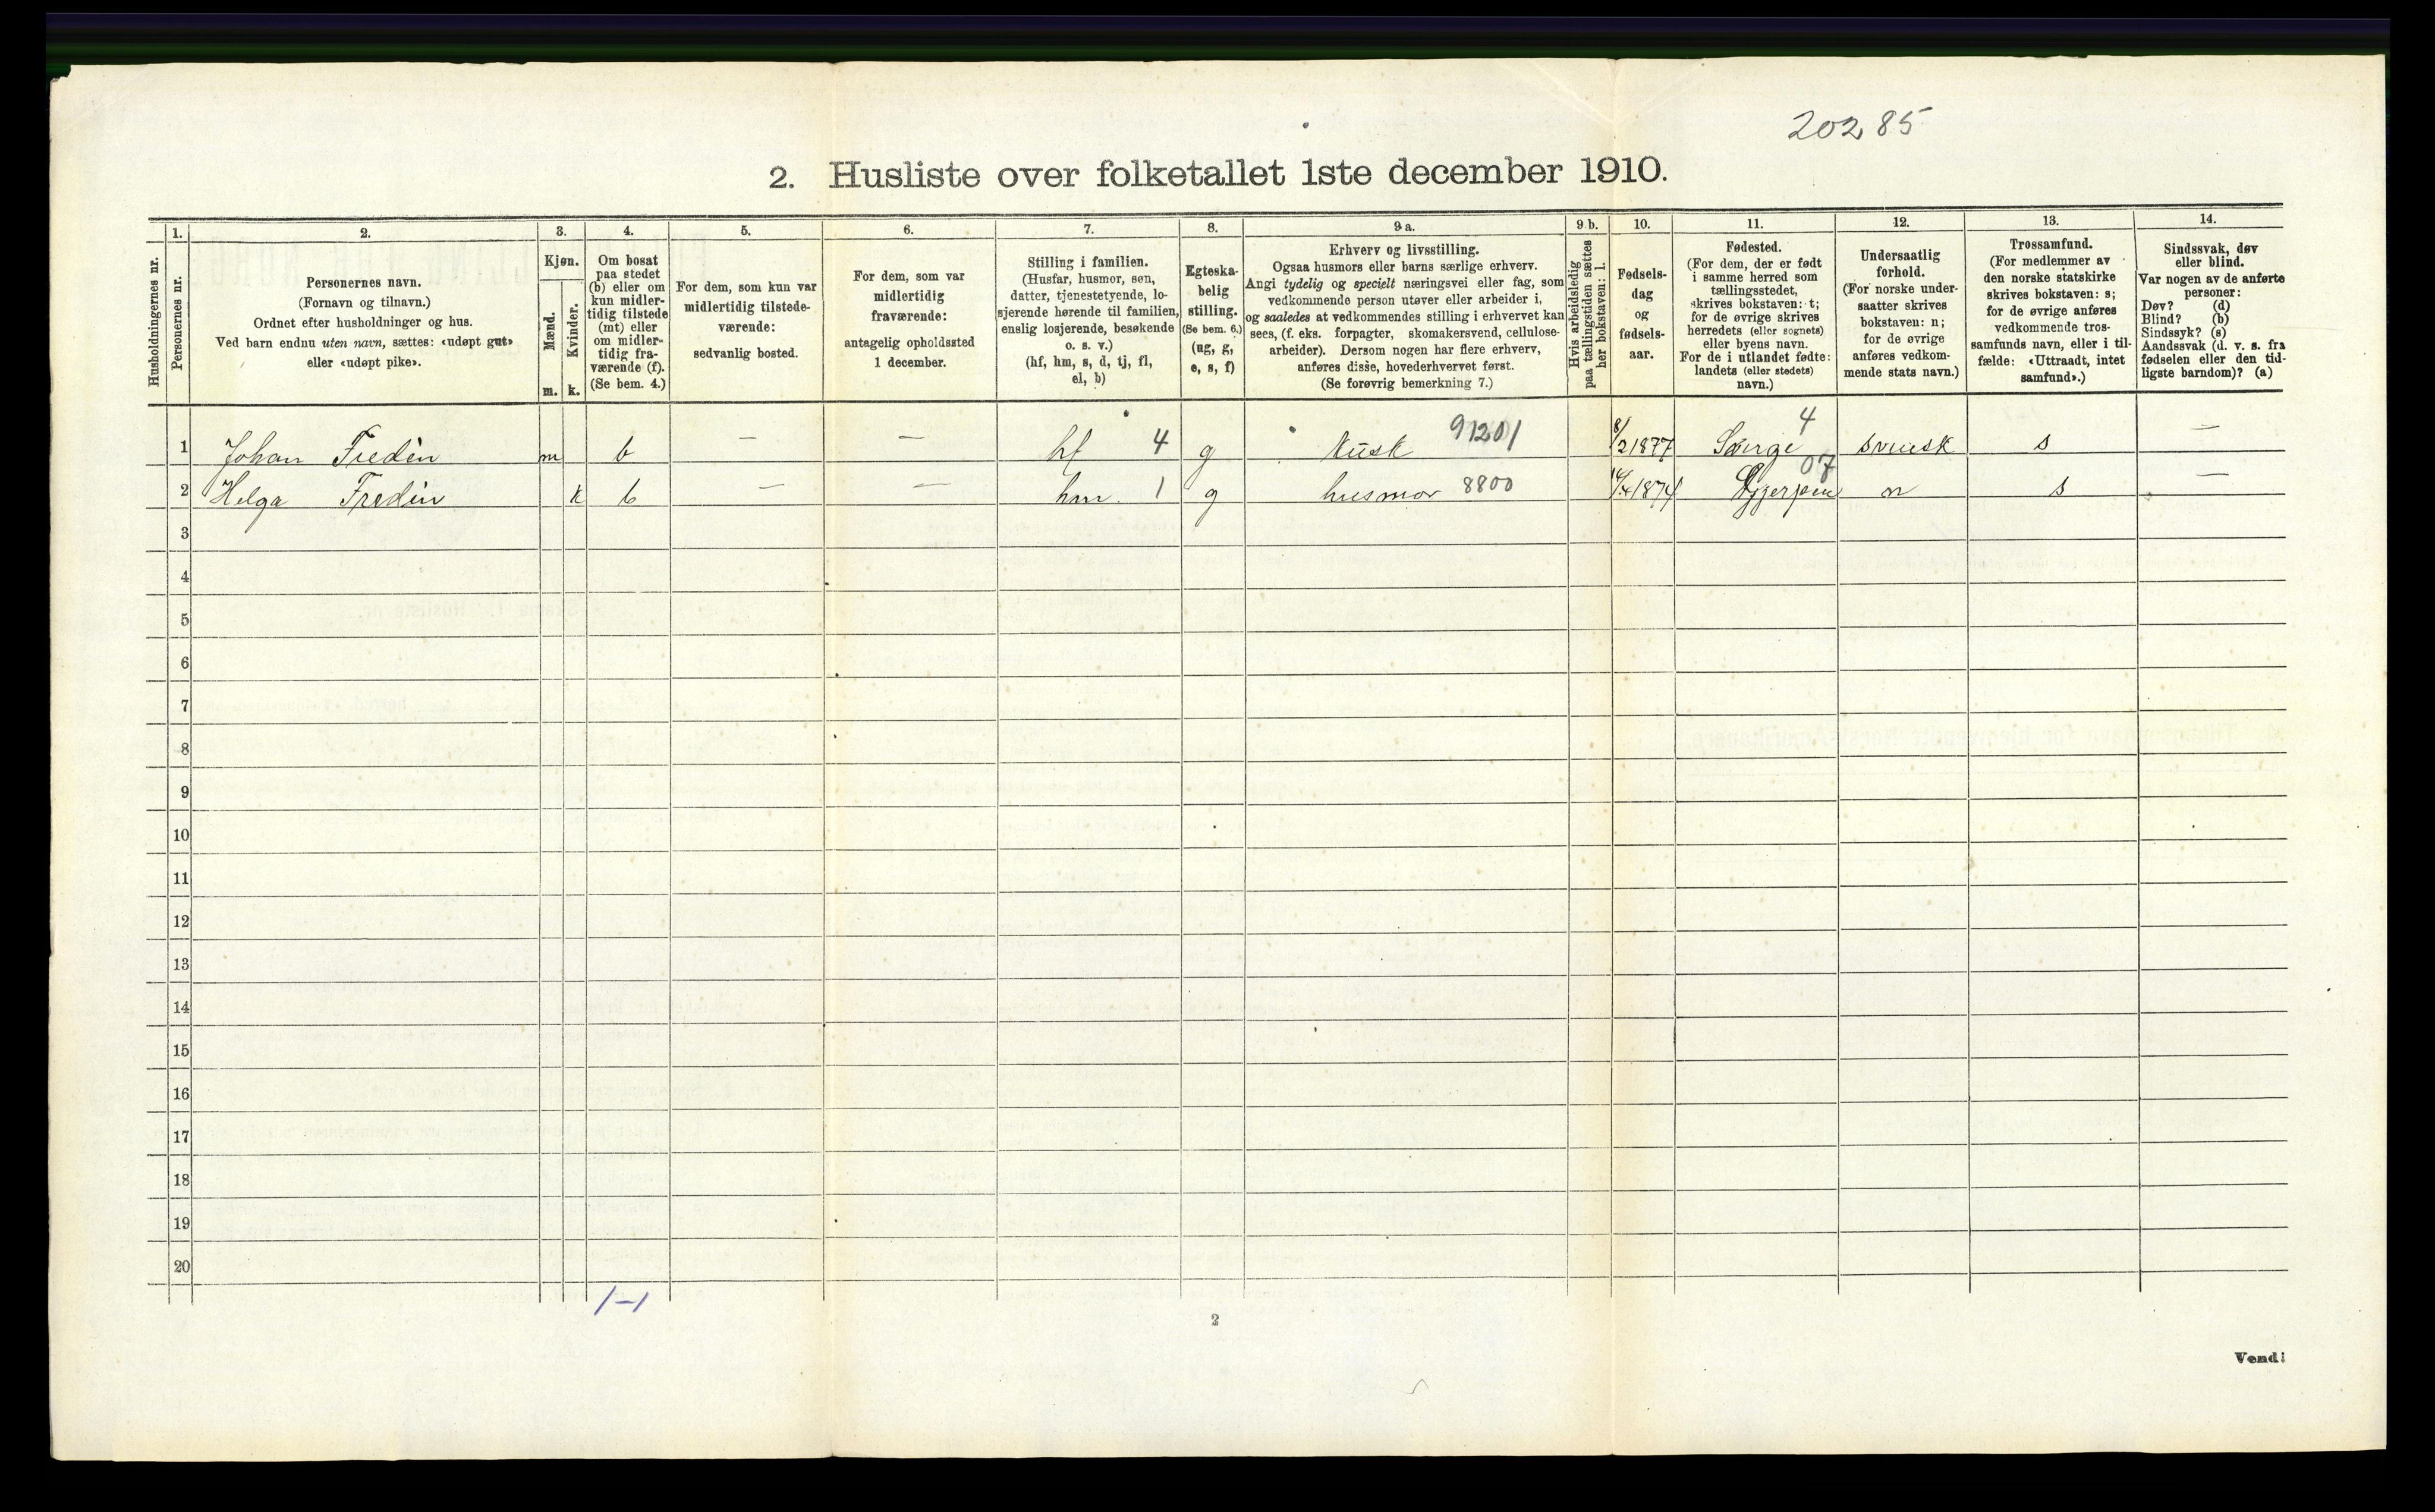 20285
2. Husliste over folketallet 1ste december 1910.
Husholdningernes nr.
1.
Personernes nr.
2.
Personernes navn.
(Fornavn og tilnavn.)
Ordnet efter husholdninger og hus.
Ved barn endnu uten navn, sættes: «udøpt gut»
eller «udøpt pike».
3.
Kjøn.
Mænd.
Kvinder.
m. k.
4.
Om bosat
paa stedet
(b) eller om
kun midler-
tidig tilstede
(mt) eller
om midler-
tidig fra-
værende (f).
(Se bem. 4.)
5.
For dem, som kun var
midlertidig tilstede-
værende:
sedvanlig bosted.
6.
For dem, som var
midlertidig
fraværende:
antagelig opholdssted
1 december.
7.
Stilling i familien.
(Husfar, husmor, søn,
datter, tjenestetyende, lo-
sjerende hørende til familien,
enslig losjerende, besøkende
o. s. v.)
(hf, hm, s, d, tj, fl,
el, b)
8.
Egteska-
belig
stilling.
(Se bem. 6.)
(ug, g,
e, s, f)
9 a.
Erhverv og livsstilling.
Ogsaa husmors eller barns særlige erhverv.
Angi tydelig og specielt næringsvei eller fag, som
vedkommende person utøver eller arbeider i,
og saaledes at vedkommendes stilling i erhvervet kan
sees, (f. eks. forpagter, skomakersvend, cellulose-
arbeider). Dersom nogen har flere erhverv,
anføres disse, hovederhvervet først.
(Se forøvrig bemerkning 7.)
9 b.
Hvis arbeidsledig
paa tællingstiden sættes
her bokstaven: l.
10.
Fødsels-
dag
og
fødsels-
aar.
11.
Fødested.
(For dem, der er født
i samme herred som
tællingsstedet,
skrives bokstaven: t;
for de øvrige skrives
herredets (eller sognets)
eller byens navn.
For de i utlandet fødte:
landets (eller stedets)
navn.)
12.
Undersaatlig
forhold.
(For norske under-
saatter skrives
bokstaven: n;
for de øvrige
anføres vedkom-
mende stats navn.)
13.
Trossamfund.
(For medlemmer av
den norske statskirke
skrives bokstaven: s;
for de øvrige anføres
vedkommende tros-
samfunds navn, eller i til-
fælde: «Uttraadt, intet
samfund».)
14.
Sindssvak, døv
eller blind.
Var nogen av de anførte
personer:
Døv? (d)
Blind? (b)
Sindssyk? (s)
Aandssvak (d. v. s. fra
fødselen eller den tid-
ligste barndom)? (a)
1 Johan Fredin m b — — hf 4 g Kusk 91201 8/2 1877 Sverge 4 svensk s —
2 Helga Fredin k b — — hm. 1 g husmor 8800 1874 Gjerpen 07 n s —
3
4
5
6
7
8
9
10
11
12
13
14
15
16
17
18
19
20
1-1
2
Vend!